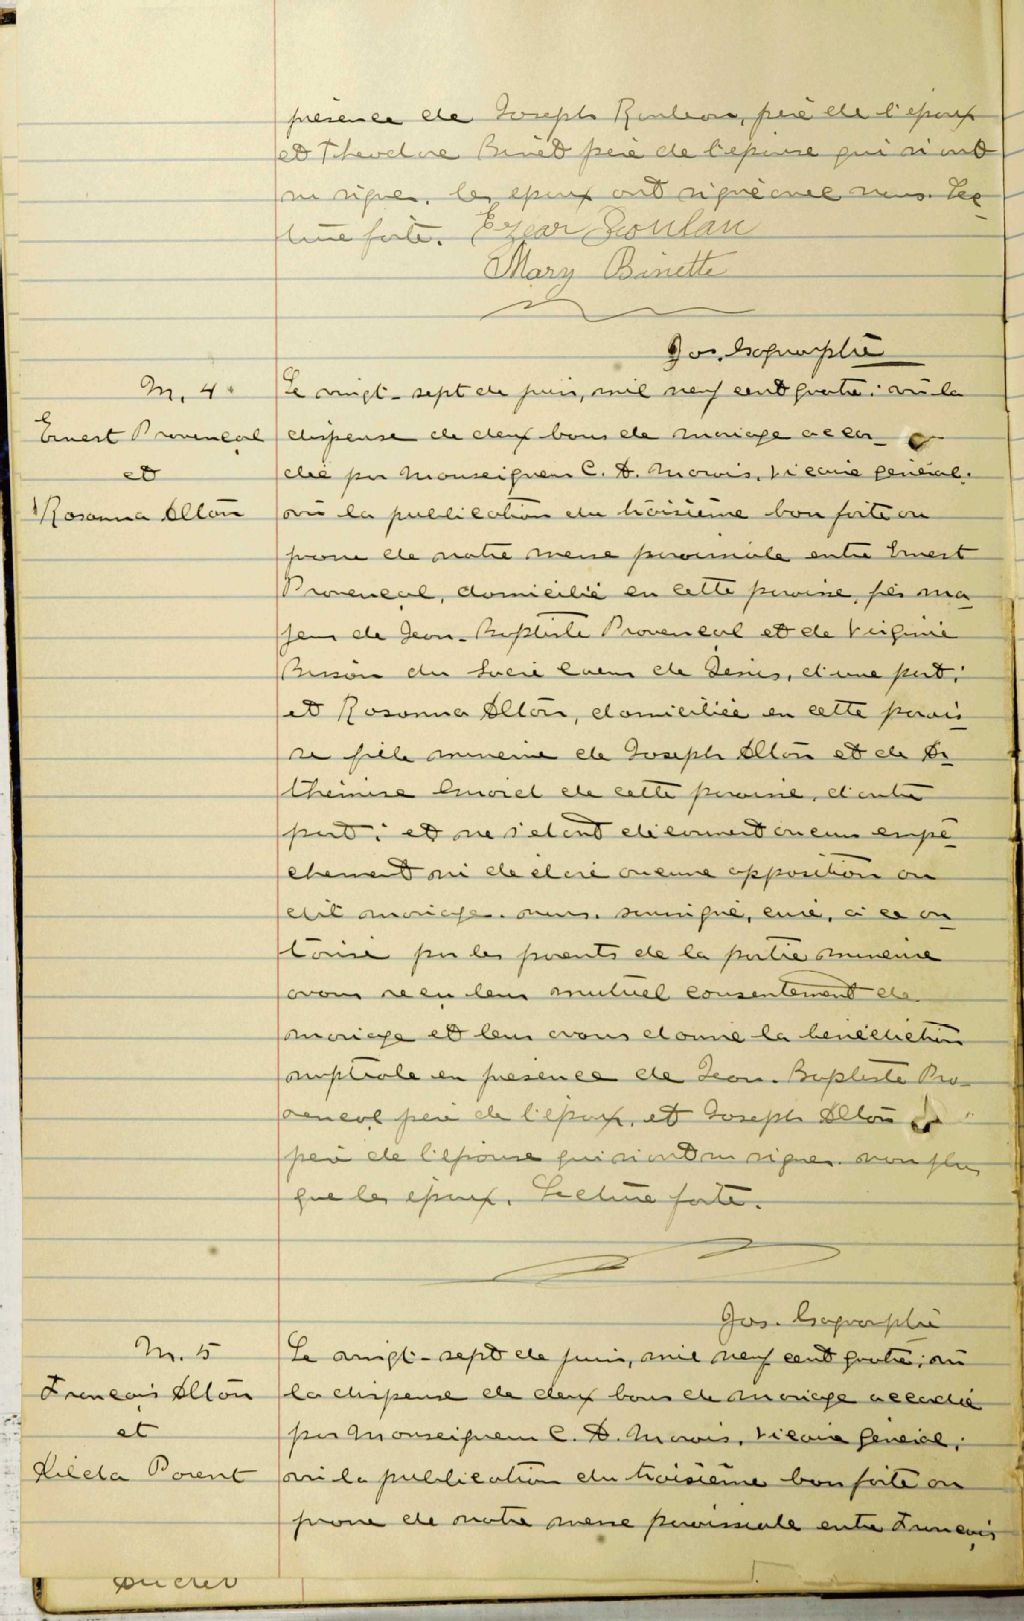 présence de Joseph Rouleau, père de l'époux
et Théodore Binet père de l'épouse qui n'ont
su signer. les époux ont signé avec nous. Lec-
ture faite. Ezear Roulau
Mary Binette
Jos.
M. 4
Le vingt-sept de juin, mil neuf cent quatre; vu la
Ernest Provençal
dispense de deux bans de mariage accor-
et
dée par Monseigneur C. A. Marois, vicaire général;
Rosanna Allon
vu la publication du troisième ban faite au
prone de notre messe paroissiale entre Ernest
Provençal, domicilié en cette paroisse, fils ma-
jeur de Jean-Baptiste Provençal et de Virginie
Bisson du Sacré Coeur de Jésus, d'une part;
et Rosanna Allon, domiciliée en cette parois-
se fille mineure de Joseph Allon et de Ar-
thémise de cette paroisse, d'autre
part; et ne s'étant découvert aucun empê-
chement ni déclaré aucune opposition au
dit mariage. nous, soussigné, curé, à ce au-
torisé par les parents de la partie mineure
avons reçu leur mutuel consentement de
mariage et leur avons donné la bénédiction
nuptiale en présence de Jean-Baptiste Pro-
vençal père de l'époux, et Joseph Allon
père de l'épouse qui n'ont su signer non plus
que les époux. Lecture faite.
Jos.
M. 5
Le vingt-sept de juin, mil neuf cent quatre; vu
François Allon
la dispense de deux bans de mariage accordée
et
par Monseigneur C. A. Marois, vicaire général;
Kilda Parent
vu la publication du troisième ban faite au
prone de notre messe paroissiale entre François